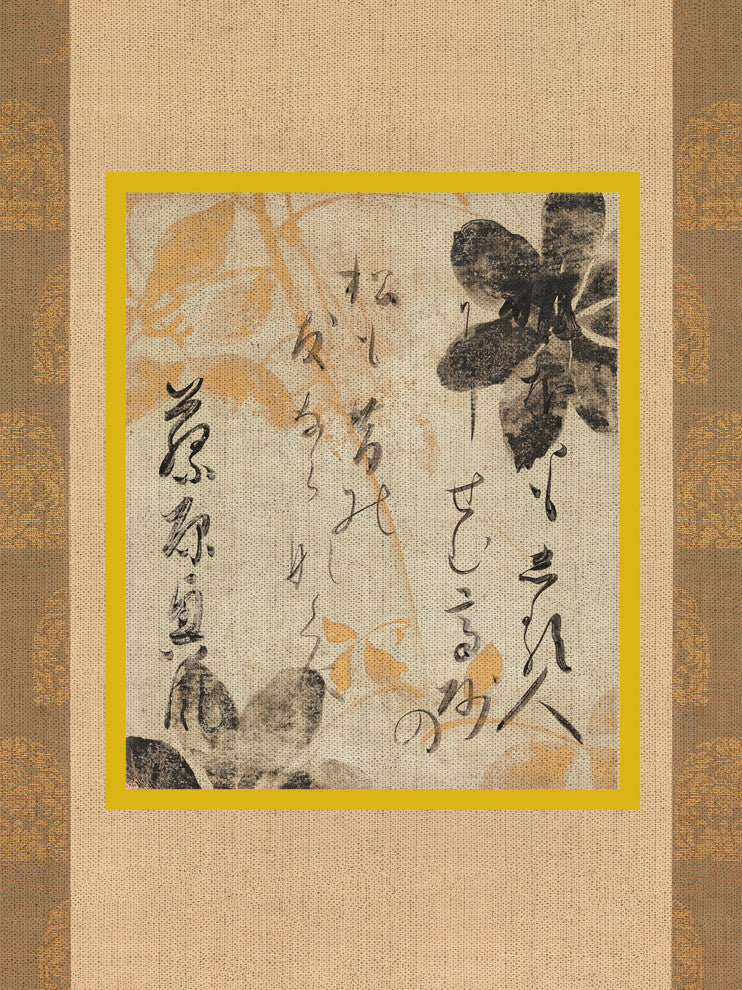 誰をかもしる人
にせむ高砂
の
松も昔の
友ならなくに
藤原興風